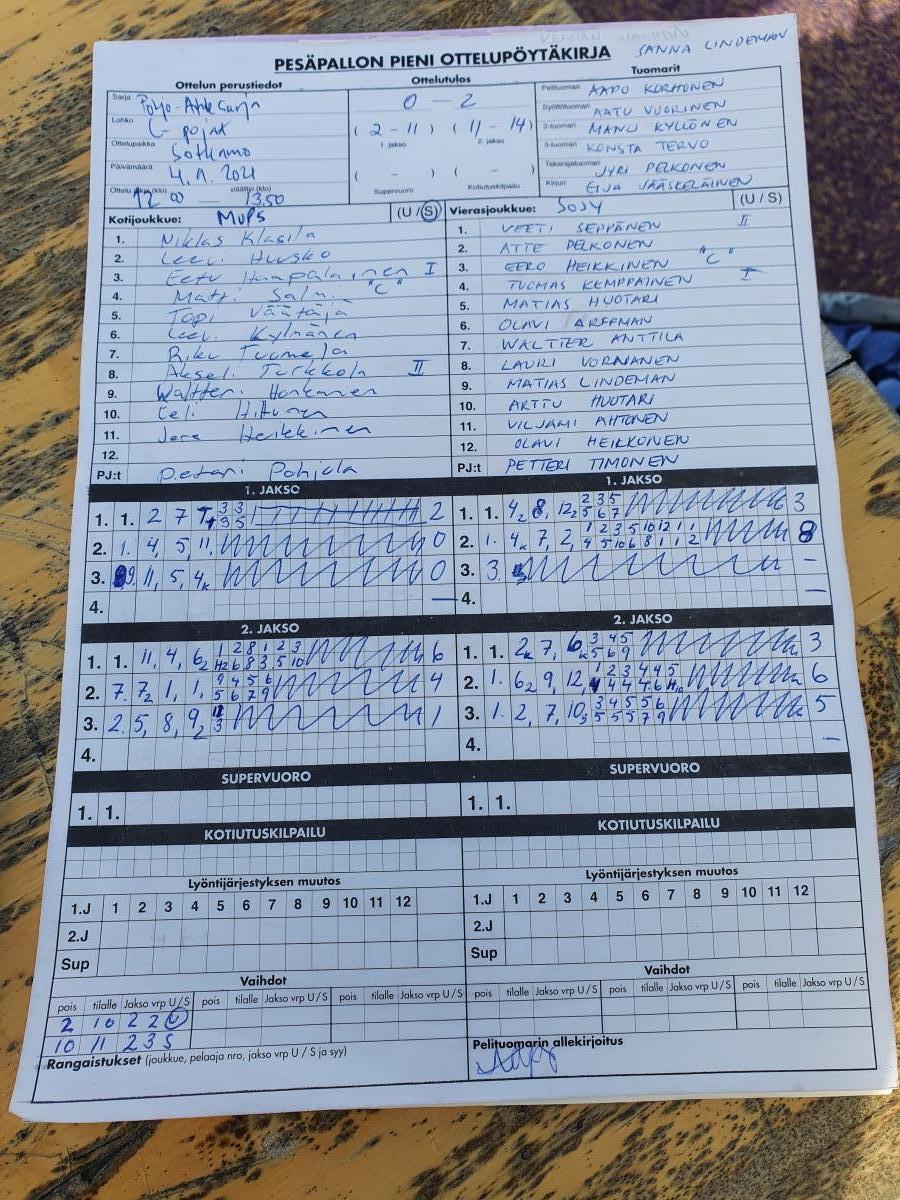 SANNA LINDEMAN
PESÄPALLON PIENI OTTELUPÖYTÄKIRJA
Ottelun perustiedot
Sarja
Lohko C-pojat
Ottelupaikka Sotkamo
Päivämäärä
Ottelu alkoi (klo) 12 00 — päättyi (klo) 13.50
Ottelutulos
0 — 2
(2 - 11) (11 - 14)
1. jakso 2. jakso
( - ) ( - )
Supervuoro Kotiutuskilpailu
Tuomarit
Pelituomari AAPO KORHONEN
Syöttötuomari AATU VUORINEN
2-tuomari MANU KYLLÖNEN
3-tuomari KONSTA TERVO
Takarajatuomari JYRI PELKONEN
Kirjuri EIJA JÄÄSKELÄINEN
Kotijoukkue: MuPS (U / S)
1. Niklas Klasila
2. Leevi Huusko
3. Eetu Haapalainen I
4. Matti Salmi "C"
5. Topi Väätäjä
6. Leevi Kylmänen
7. Riku Tuomela
8. Akseli Turkkola II
9. Waltteri Honkanen
10. Eeli Hiltunen
11. Jere Heikkinen
12.
PJ:t Petari Pohjola
Vierasjoukkue: SoJy (U / S)
1. VEETI SEPPÄNEN II
2. ATTE PELKONEN
3. EERO HEIKKINEN "C"
4. TUOMAS KEMPPAINEN I
5. MATIAS HUOTARI
6. OLAVI ARFFMAN
7. WALTTER ANTTILA
8. LAURI VORNANEN
9. MATIAS LINDEMAN
10. ARTTU HUOTARI
11. VILJAMI AHTONEN
12. OLAVI HEIKKONEN
PJ:t PETTERI TIMONEN
1. JAKSO
1. 1. 2 7 2
2. 1. 4, 5, 11, 0
3. 9. 11, 5, 4k 0
4. —
1. JAKSO
1. 1. 4 8, 12 3
2. 1. 4k 7, 2, 8
3. 3. —
4. —
2. JAKSO
1. 1. 11, 4, 6 6
2. 7. 7 1, 1, 4
3. 2. 5, 8, 9 1
4.
2. JAKSO
1. 1. 2k 7, 6 3
2. 1. 6 9, 12, 6
3. 1. 2, 7, 10 5
4. —
SUPERVUORO
1. 1.
SUPERVUORO
1. 1.
KOTIUTUSKILPAILU
KOTIUTUSKILPAILU
Lyöntijärjestyksen muutos
1.J 1 2 3 4 5 6 7 8 9 10 11 12
2.J
Sup
Lyöntijärjestyksen muutos
1.J 1 2 3 4 5 6 7 8 9 10 11 12
2.J
Sup
Vaihdot
pois tilalle Jakso vrp U / S pois tilalle Jakso vrp U / S pois tilalle Jakso vrp U / S
2 10 2 2 U
10 11 2 3 S
Vaihdot
pois tilalle Jakso vrp U / S pois tilalle Jakso vrp U / S pois tilalle Jakso vrp U / S
Rangaistukset (joukkue, pelaaja nro, jakso vrp U / S ja syy)
Pelituomarin allekirjoitus